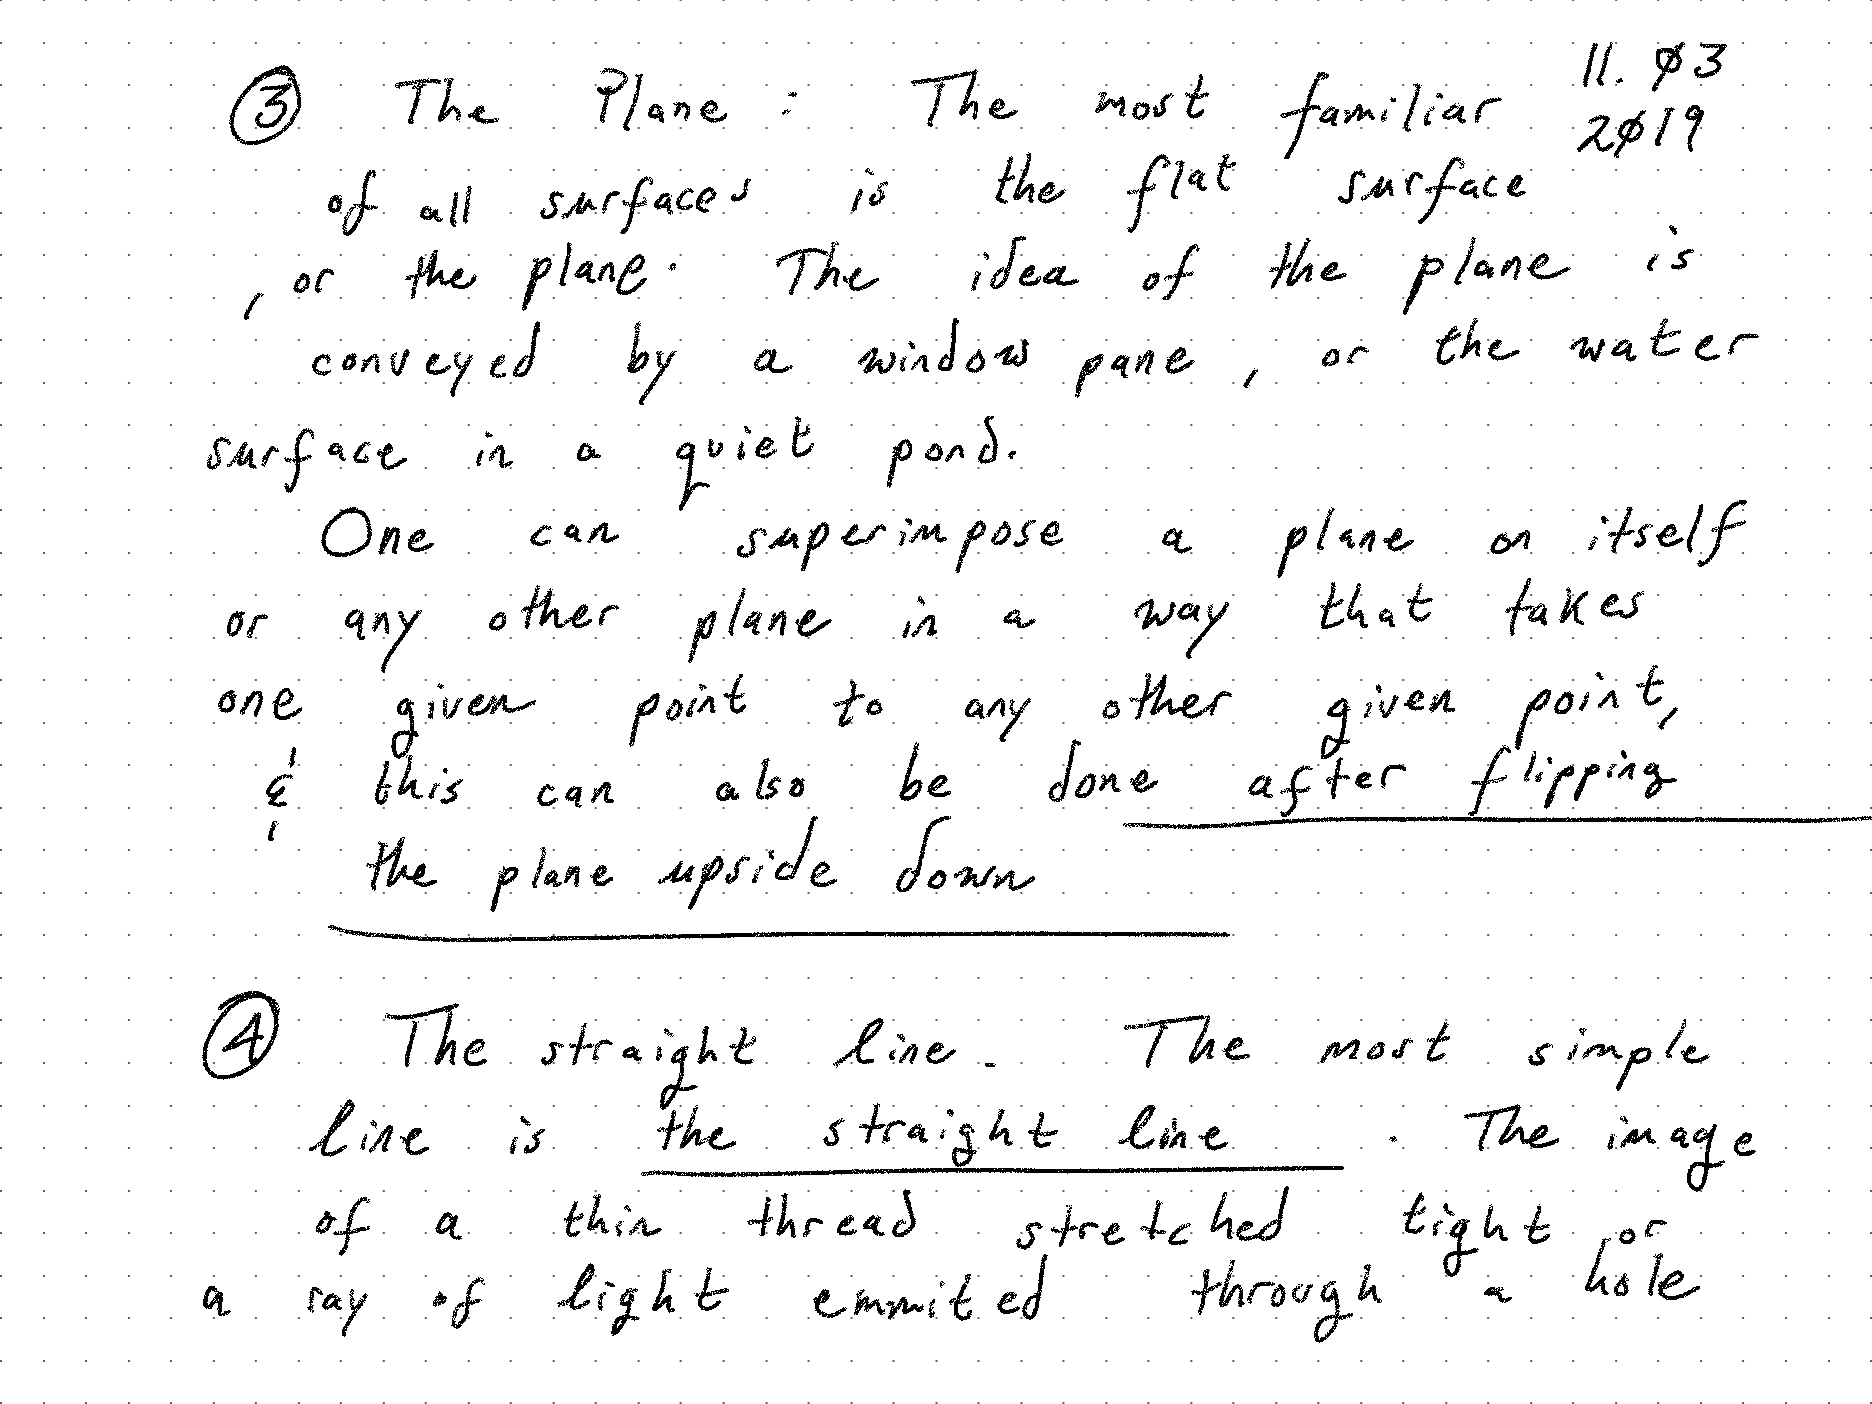 ③ The Plane : The most familiar
11. Ø3
2Ø19
of all surfaces is the flat surface
, or the plane. The idea of the plane is
conveyed by a window pane, or the water
surface in a quiet pond.
One can superimpose a plane on itself
or any other plane in a way that takes
one given point to any other given point,
& this can also be done after flipping
the plane upside down
④ The straight line. The most simple
line is the straight line. The image
of a thin thread stretched tight or
a ray of light emmited through a hole